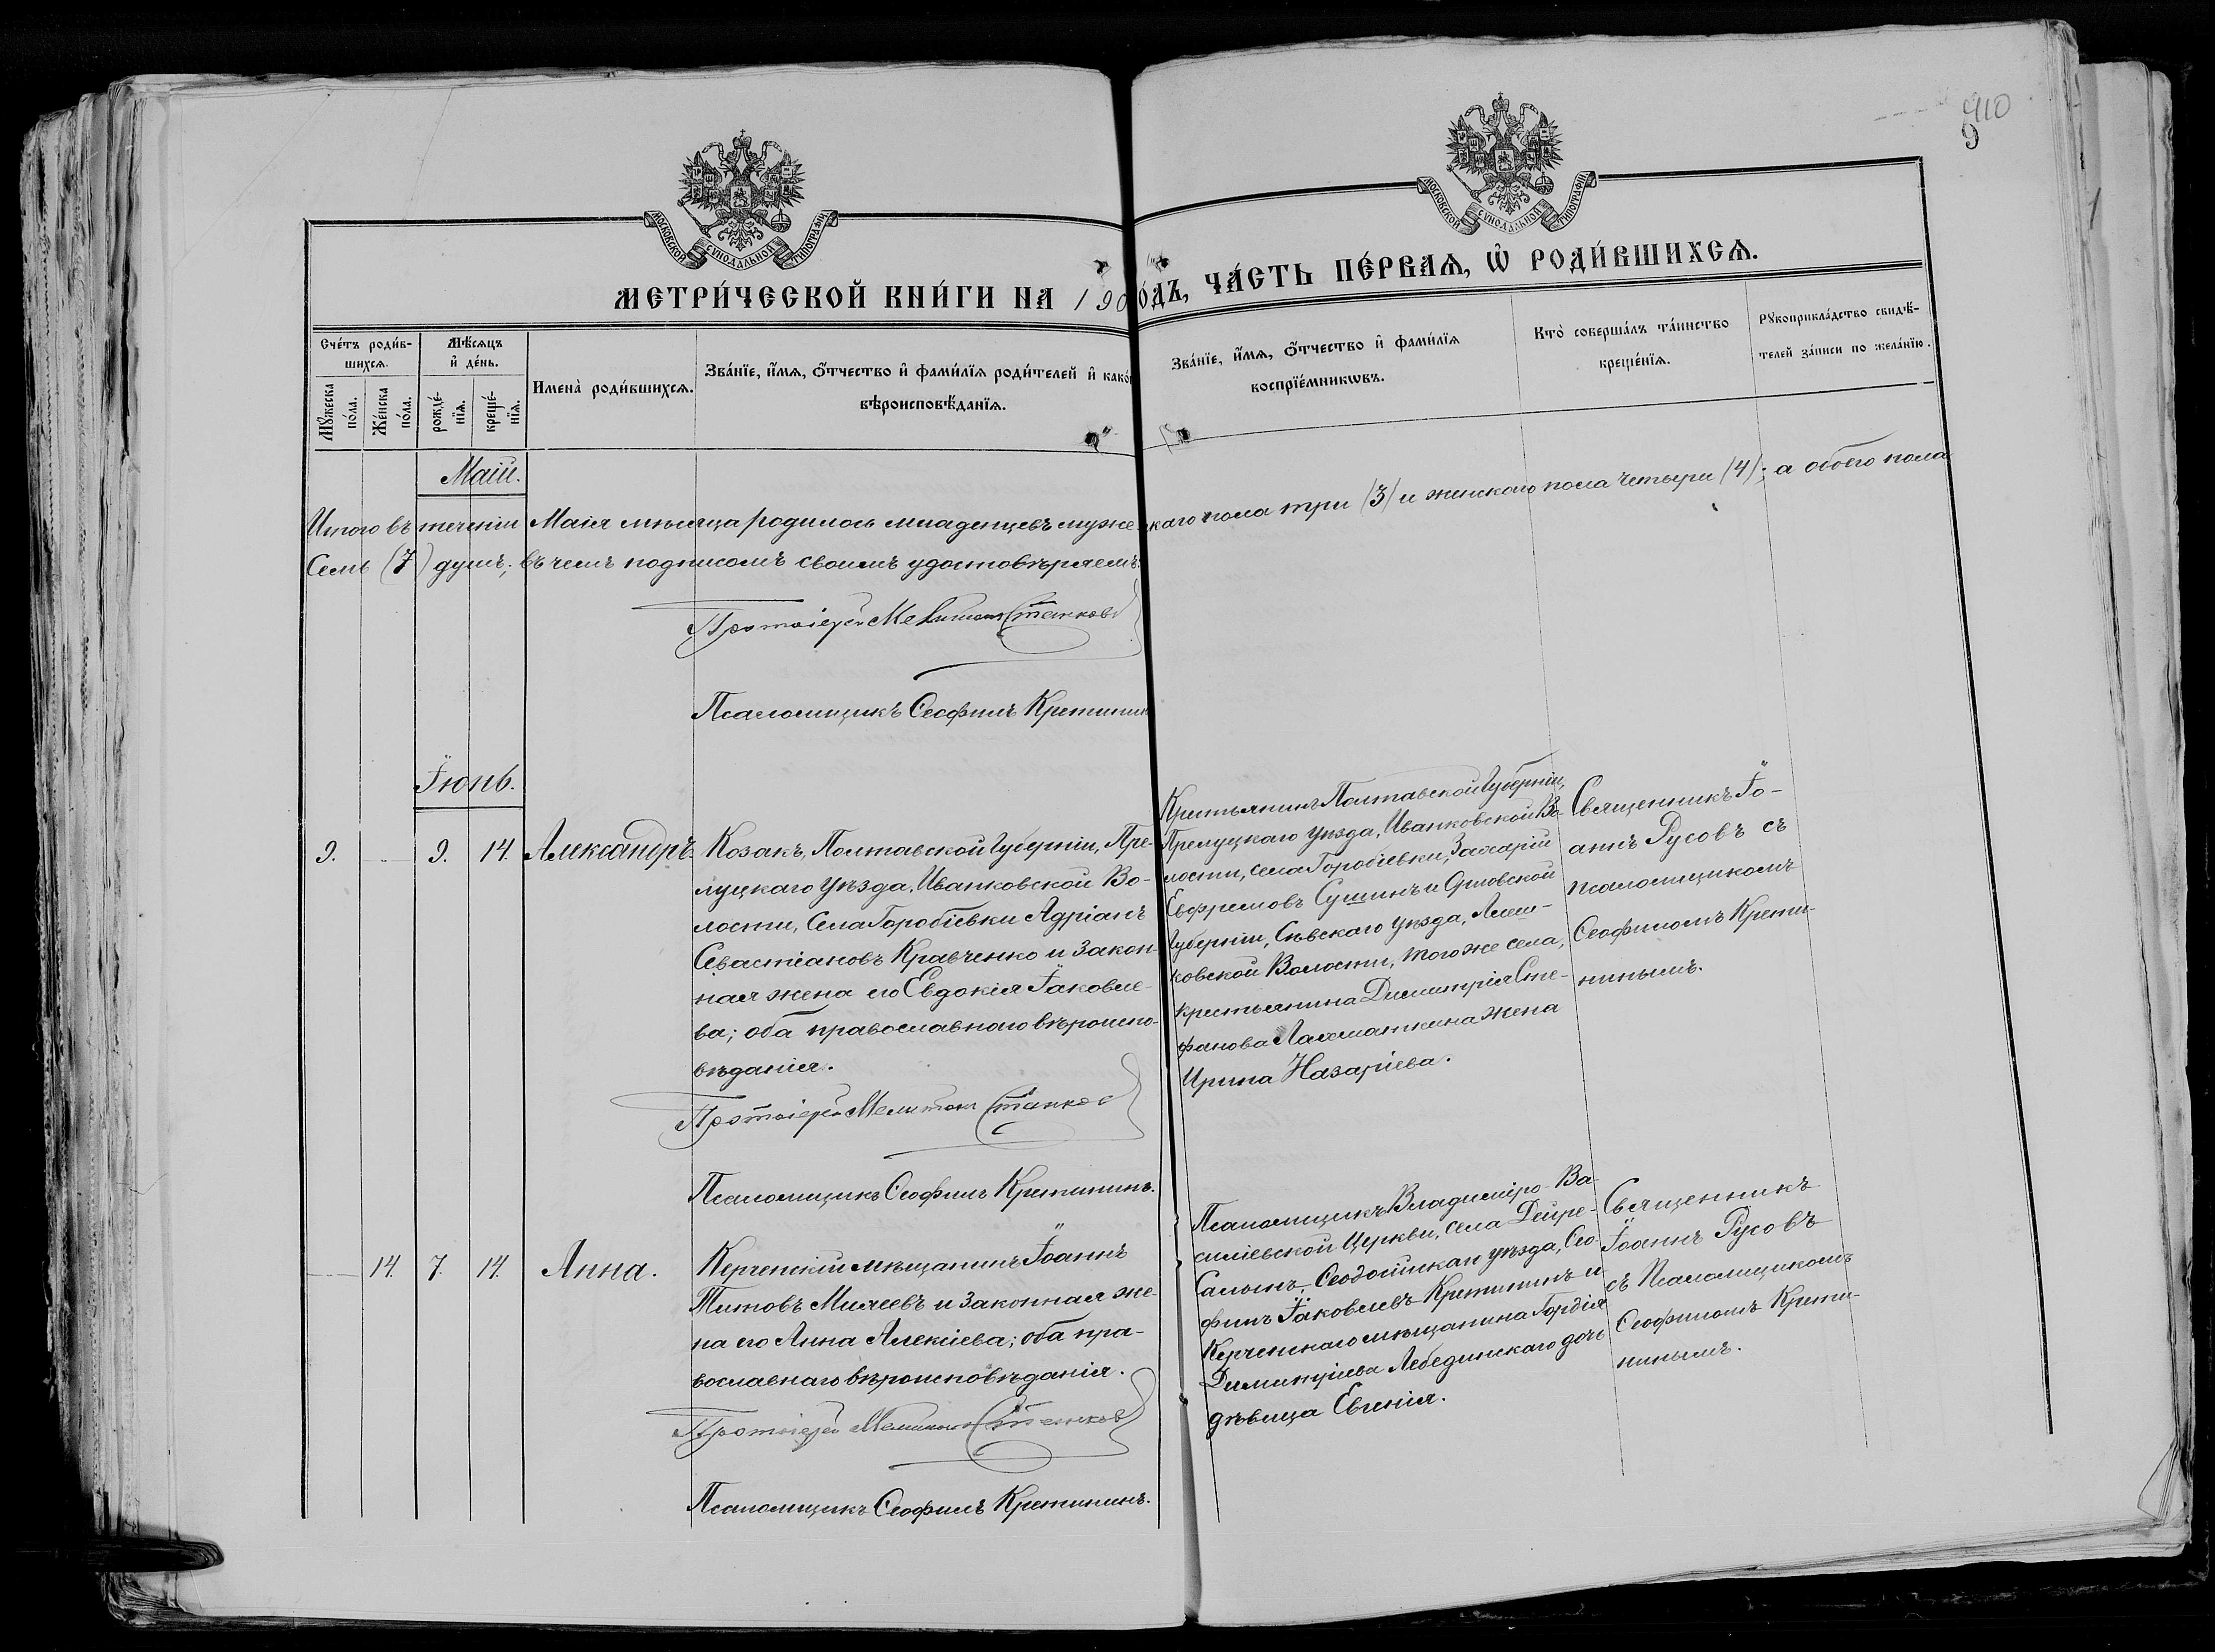 910
9
МОСКОВСКОЙ СУНОДАЛЬНОЙ ТИПОГРАФІИ
МОСКОВСКОЙ СУНОДАЛЬНОЙ ТИПОГРАФІИ
МЕТРИ́ЧЕСКОЙ КНИ́ГИ НА 190
О́ДЪ, ЧА́СТЬ ПЕ́РВАѦ, Ѡ РОДИ́ВШИХСѦ.
Сче́тъ роди́в-
шихсѧ.
Мꙋ́жеска
по́ла.
Же́нска
по́ла.
Мѣ́сѧцъ
и҆ де́нь.
рожде́-
нїѧ.
креще́-
нїѧ.
Имена̀ роди́вшихсѧ.
Зва́нїе, и҆́мѧ, ѻ҆́тчество и҆ фами́лїѧ роди́телей и҆ како́
вѣроисповѣ́данїѧ.
Зва́нїе, и҆́мѧ, ѻ҆́тчество и҆ фами́лїѧ
воспрїе́мникѡвъ.
Кто̀ соверша́лъ та́инство
креще́нїѧ.
Рꙋкоприкла́дство свидѣ́-
телей за́писи по жела́нїю.
Маій.
Итого въ теченіи Маія мѣсяца родилось младенцевъ мужескаго пола три (3) и женскаго пола четыри (4); а обоего пола
Семь (7) душъ; въ чемъ подписомъ своимъ удостовѣряемъ:
Протоіерей Мелитонъ Станковъ
Псаломщикъ Ѳеофилъ Кретинин
Іюнь.
9.
9.
14.
Александръ.
Козакъ, Полтавской Губерніи, Пре-
луцкаго уѣзда, Иванковской Во-
лости, Села Горобіевки Адріанъ
Севастіановъ Кравченко и закон-
ная жена его Евдокія Іаковле-
ва; оба православнаго вѣроиспо-
вѣданія.
Протоіерей Мелитонъ Станков
Псаломщикъ Ѳеофилъ Кретининъ.
Крестьянинъ Полтавской Губерніи,
Прелуцкаго уѣзда, Иванковской Во-
лости, села Горобіевки, Захарій
Евфремовъ Сушинъ и Орловской
Губерніи, Сѣвскаго уѣзда, Алеш-
ковской Волости, того же села,
крестьянина Димитрія Сте-
фанова Лахматкина жена
Ирина Назаріева.
Священникъ Іо-
аннъ Русовъ съ
псаломщикомъ
Ѳеофиломъ Крети-
нинымъ.
14.
7.
14.
Анна.
Керченскій мѣщанинъ Іоаннъ
Титовъ Миляевъ и законная же-
на его Анна Алексіева; оба пра-
вославнаго вѣроисповѣданія.
Протоіерей Мелитонъ Станков
Псаломщикъ Ѳеофилъ Кретининъ.
Псаломщикъ Владиміро-Ва-
силіевской Церкви, села Дейре-
Салынъ, Ѳеодосійскаго уѣзда, Ѳео-
филъ Іаковлевъ Кретининъ и
Керченскаго мѣщанина Гордія
Димитріева Лебединскаго дочь
дѣвица Евгенія.
Священникъ
Іоаннъ Русовъ
съ Псаломщикомъ
Ѳеофиломъ Крети-
нинымъ.